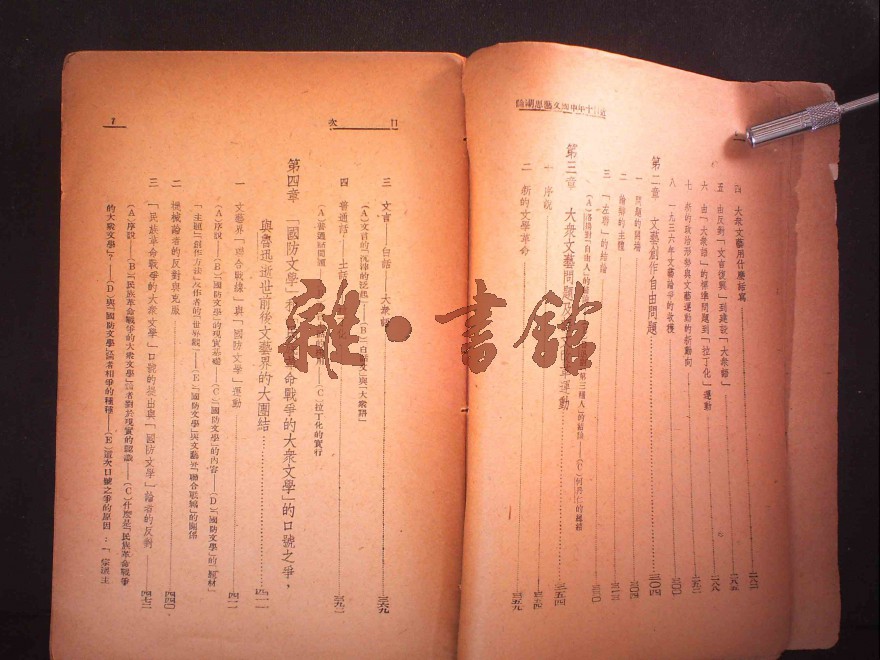 近二十年中國文藝思潮論
四　大衆文藝用什麼話寫
五　由反對「文言復興」到建設「大衆語」
六　由「大衆語」的標準問題到「拉丁化」運動
七　新的政治形勢與文藝運動的新動向
八　一九三六年文藝論爭的收穫
第二章　文藝創作自由問題……三〇四
一　問題的開端……三〇四
二　論辯的主體……三一三
三　「左聯」的結論……三三〇
第三章　大衆文藝問題及
運動……三五四
一　序說
二　新的文學革命……三五九
目次
三　文言——白話——大衆語……三六九
（A）文言的
（B）白話文與「大衆語」
四　普通話——土話
（A）普通話問題
（C）拉丁化的實行
第四章　「國防文學」和
革命戰爭的大衆文學」的口號之爭，
與魯迅逝世前後文藝界的大團結
一　文藝界「聯合戰線」與「國防文學」運動
（A）序說——（B）「國防文學」的現實基礎——（C）「國防文學」的內容——（D）「國防文學」的「題材」
「主題」「創作方法」及作者的「世界觀」——（E）「國防文學」與文藝界「聯合戰線」的關係
二　機械論者的反對與克服……四四〇
三　「民族革命戰爭的大衆文學」口號的提出與「國防文學」論者的反對……四七二
（A）序說——（B）「民族革命戰爭的大衆文學」論者對於現實的認識——（C）什麼是「民族革命戰爭
的大衆文學」？——（D）與「國防文學」論者相爭的種種——（E）這次口號之爭的原因
雜·書館